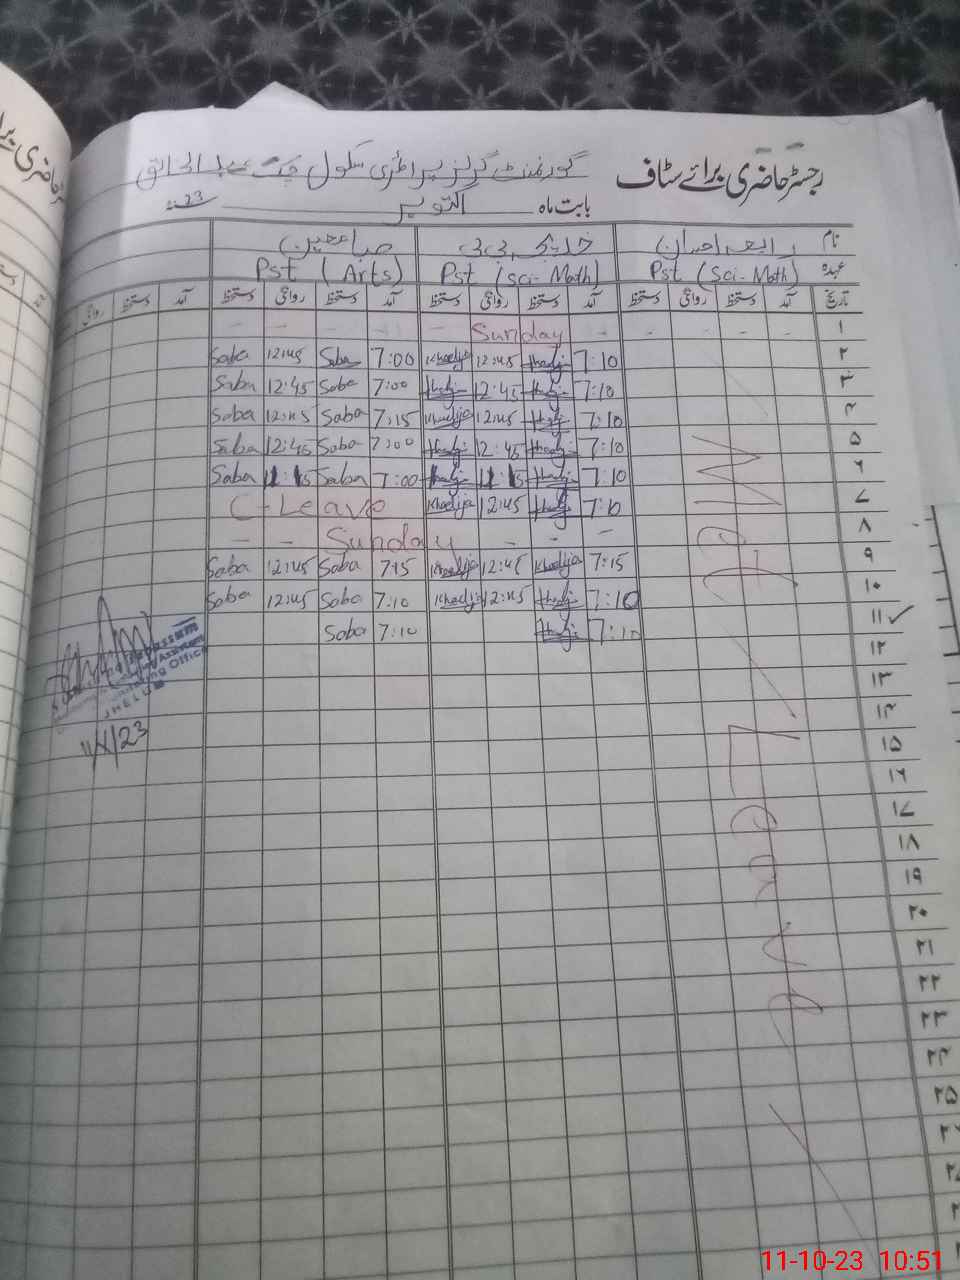 رجسٹر حاضری برائے سٹاف
گورنمنٹ گرلز پرائمری سکول چک عبدالخالق
بابت ماہ اکتوبر 23
نام رابعہ خدیجہ بی بی صبا معین
عہدہ Pst (Sci-Math) Pst (Sci-Math) Pst (Arts)
تاریخ آمد دستخط روانگی دستخط آمد دستخط روانگی دستخط آمد دستخط روانگی دستخط آمد دستخط روانگی
۱ - - Sunday - - - -
۲ 7:10 Khadija 12:45 Khadija 7:00 Saba 12:45 Saba
۳ 7:10 Khadija 12:45 Khadija 7:00 Saba 12:45 Saba
۴ 7:10 Khadija 12:45 Khadija 7:15 Saba 12:45 Saba
۵ 7:10 Khadija 12:45 Khadija 7:00 Saba 12:45 Saba
۶ 7:10 Khadija 11:15 Khadija 7:00 Saba 11:15 Saba
۷ 7:10 Khadija 12:45 Khadija C-Leave
۸ - - Sunday - - -
۹ 7:15 Khadija 12:45 Khadija 7:15 Saba 12:45 Saba
۱۰ 7:10 Khadija 12:45 Khadija 7:10 Saba 12:45 Saba
۱۱ ✓ 7:10 Khadija 7:10 Saba
۱۲
۱۳
۱۴
۱۵
۱۶
۱۷
۱۸
۱۹
۲۰
۲۱
۲۲
۲۳
۲۴
۲۵
Leave
Office
JHELUM
11/X/23
11-10-23 10:51